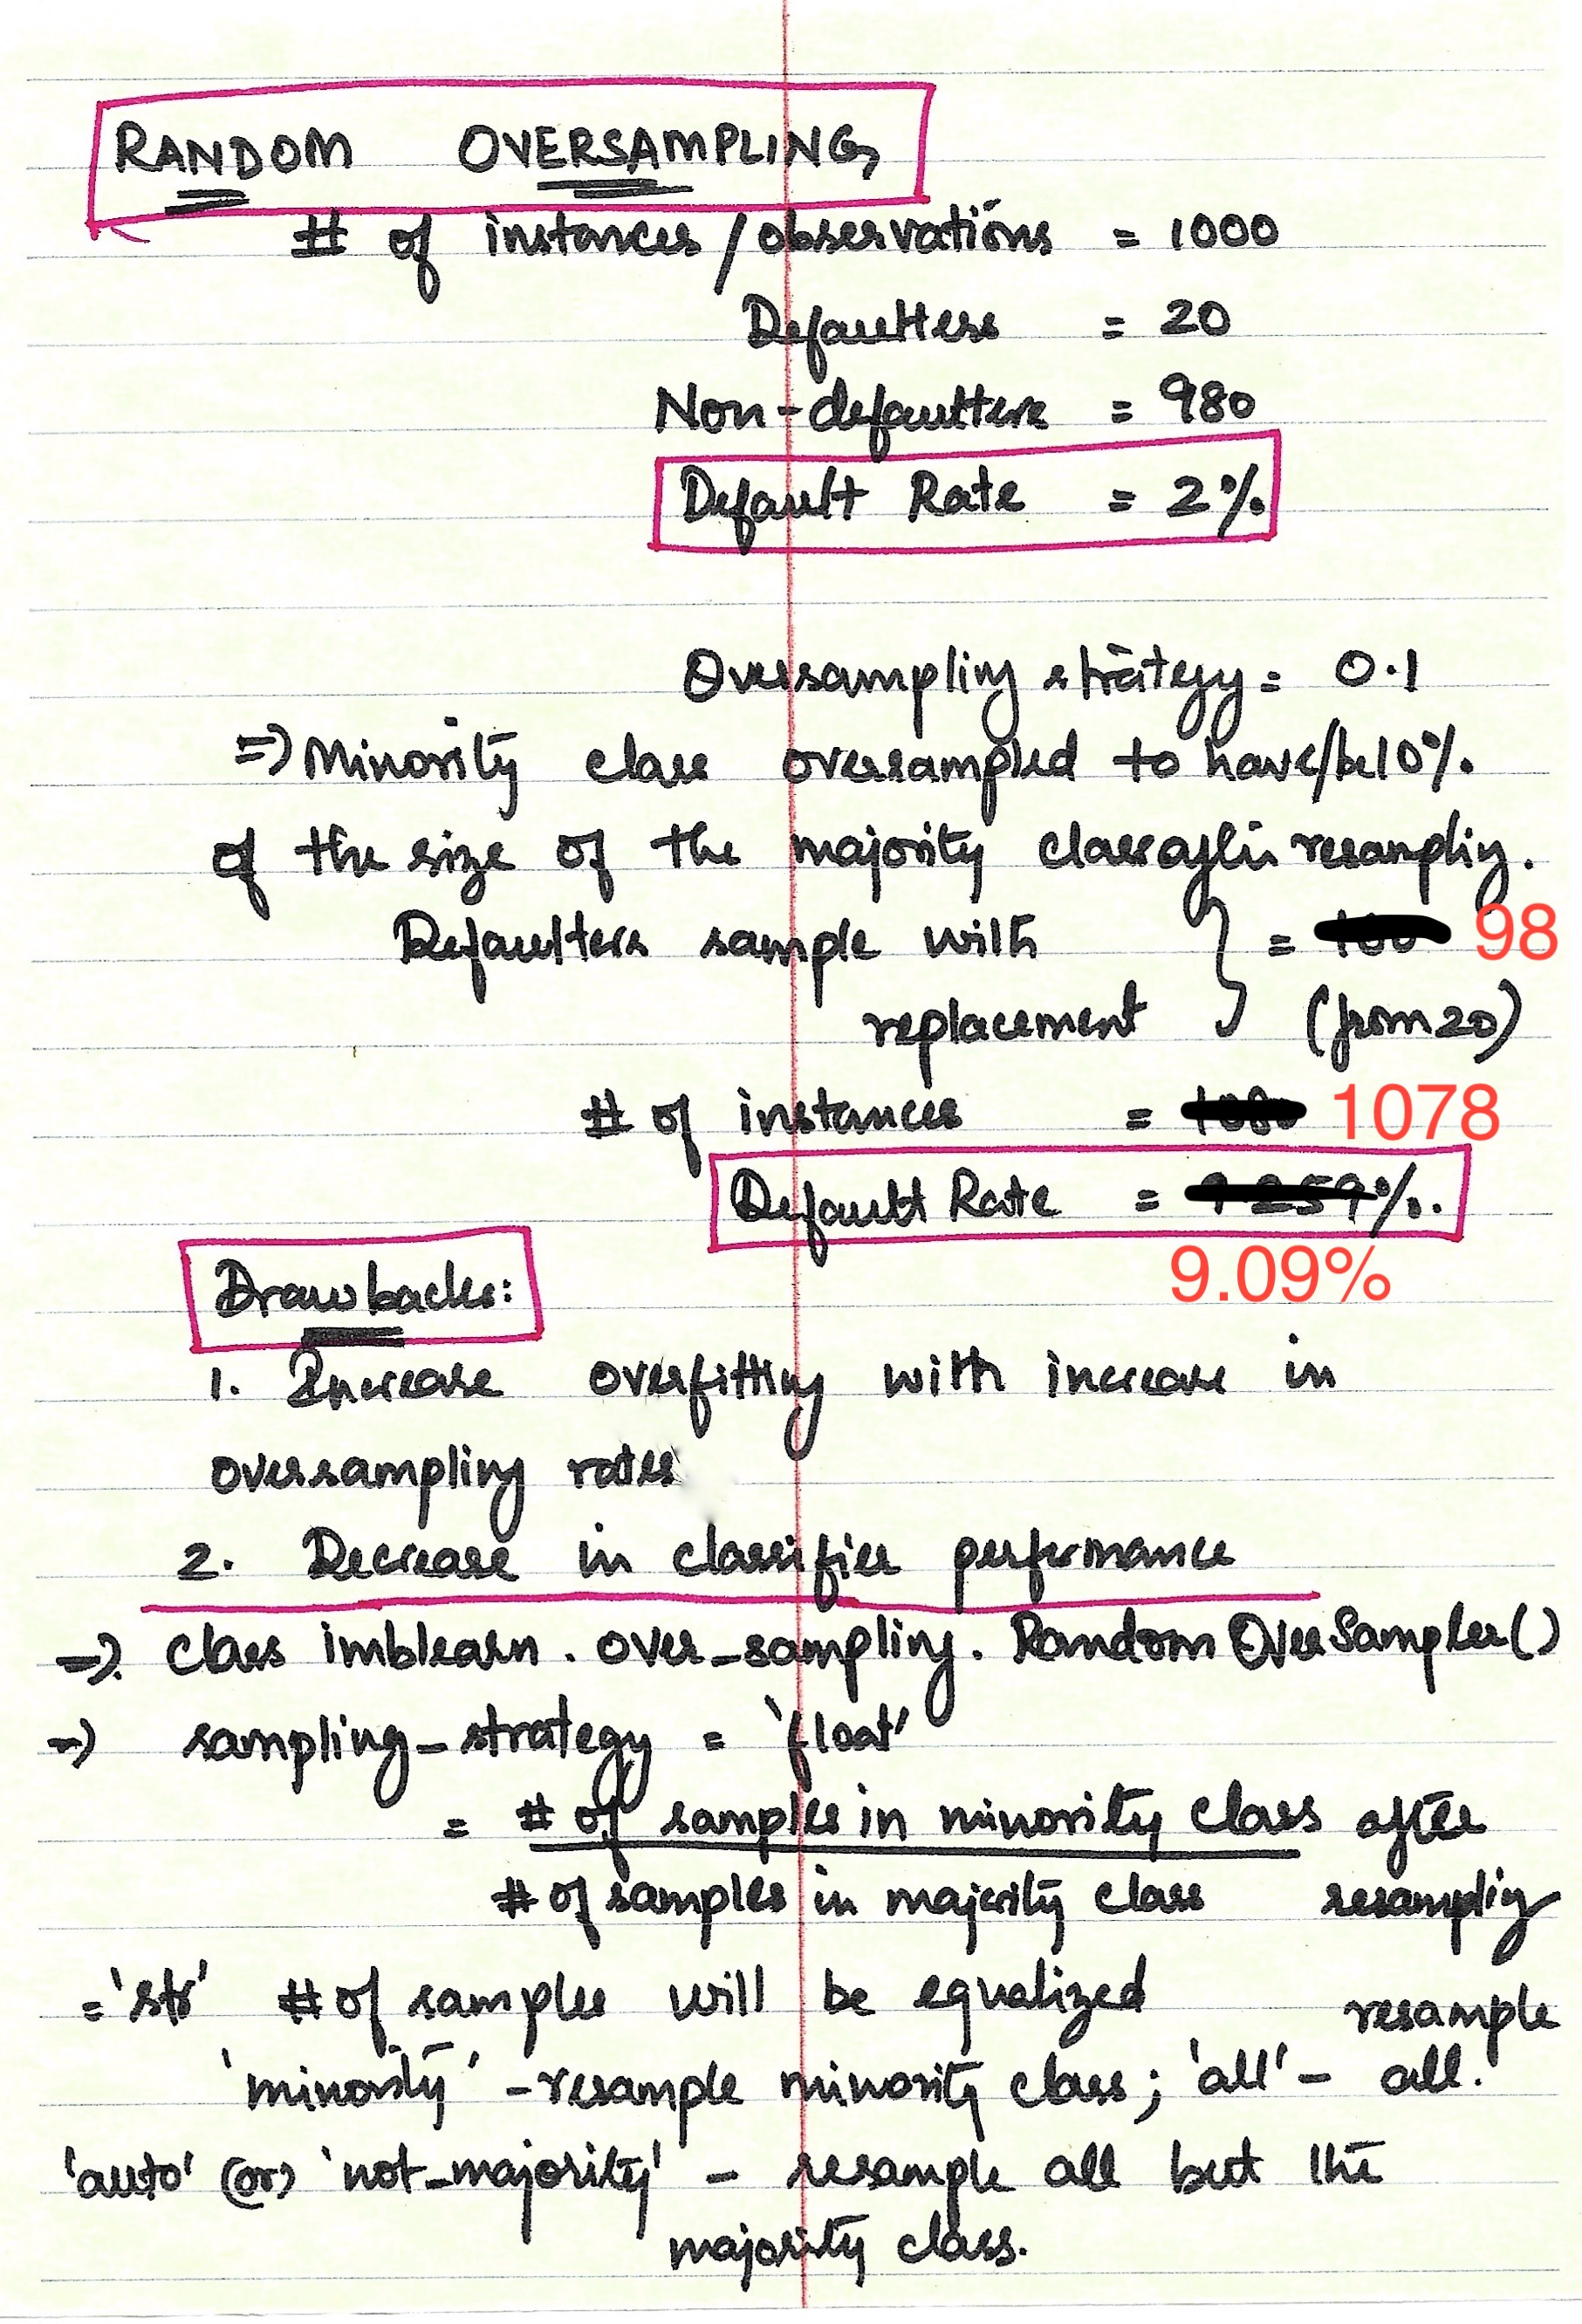 RANDOM OVERSAMPLING
# of instances / observations = 1000
Defaulters = 20
Non-defaulters = 980
Default Rate = 2%
Oversampling strategy = 0.1
=> Minority class oversampled to have/be 10%
of the size of the majority class after resampling.
Defaulters sample with } = 98
replacement (from 20)
# of instances = 1078
Default Rate = %.
9.09%
Drawbacks:
1. Increase overfitting with increase in
oversampling rates
2. Decrease in classifier performance
=> class imblearn.over_sampling.RandomOverSampler()
=> sampling_strategy = 'float'
= # of samples in minority class after
# of samples in majority class resampling
= 'str' # of samples will be equalized resample
'minority' - resample minority class; 'all' - all.
'auto' (or) 'not_majority' - resample all but the
majority class.